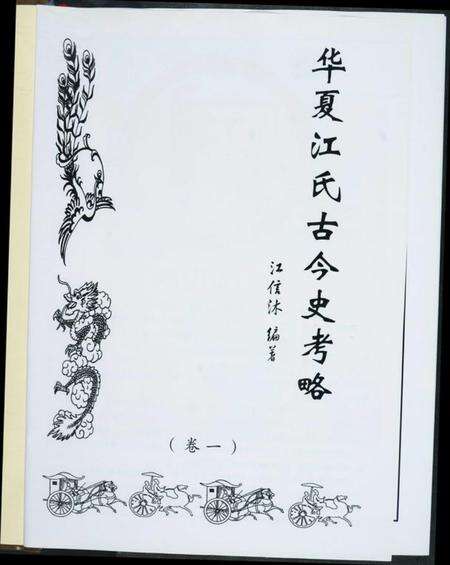 华夏江氏古今史考略
江信沐 编著
（卷一）